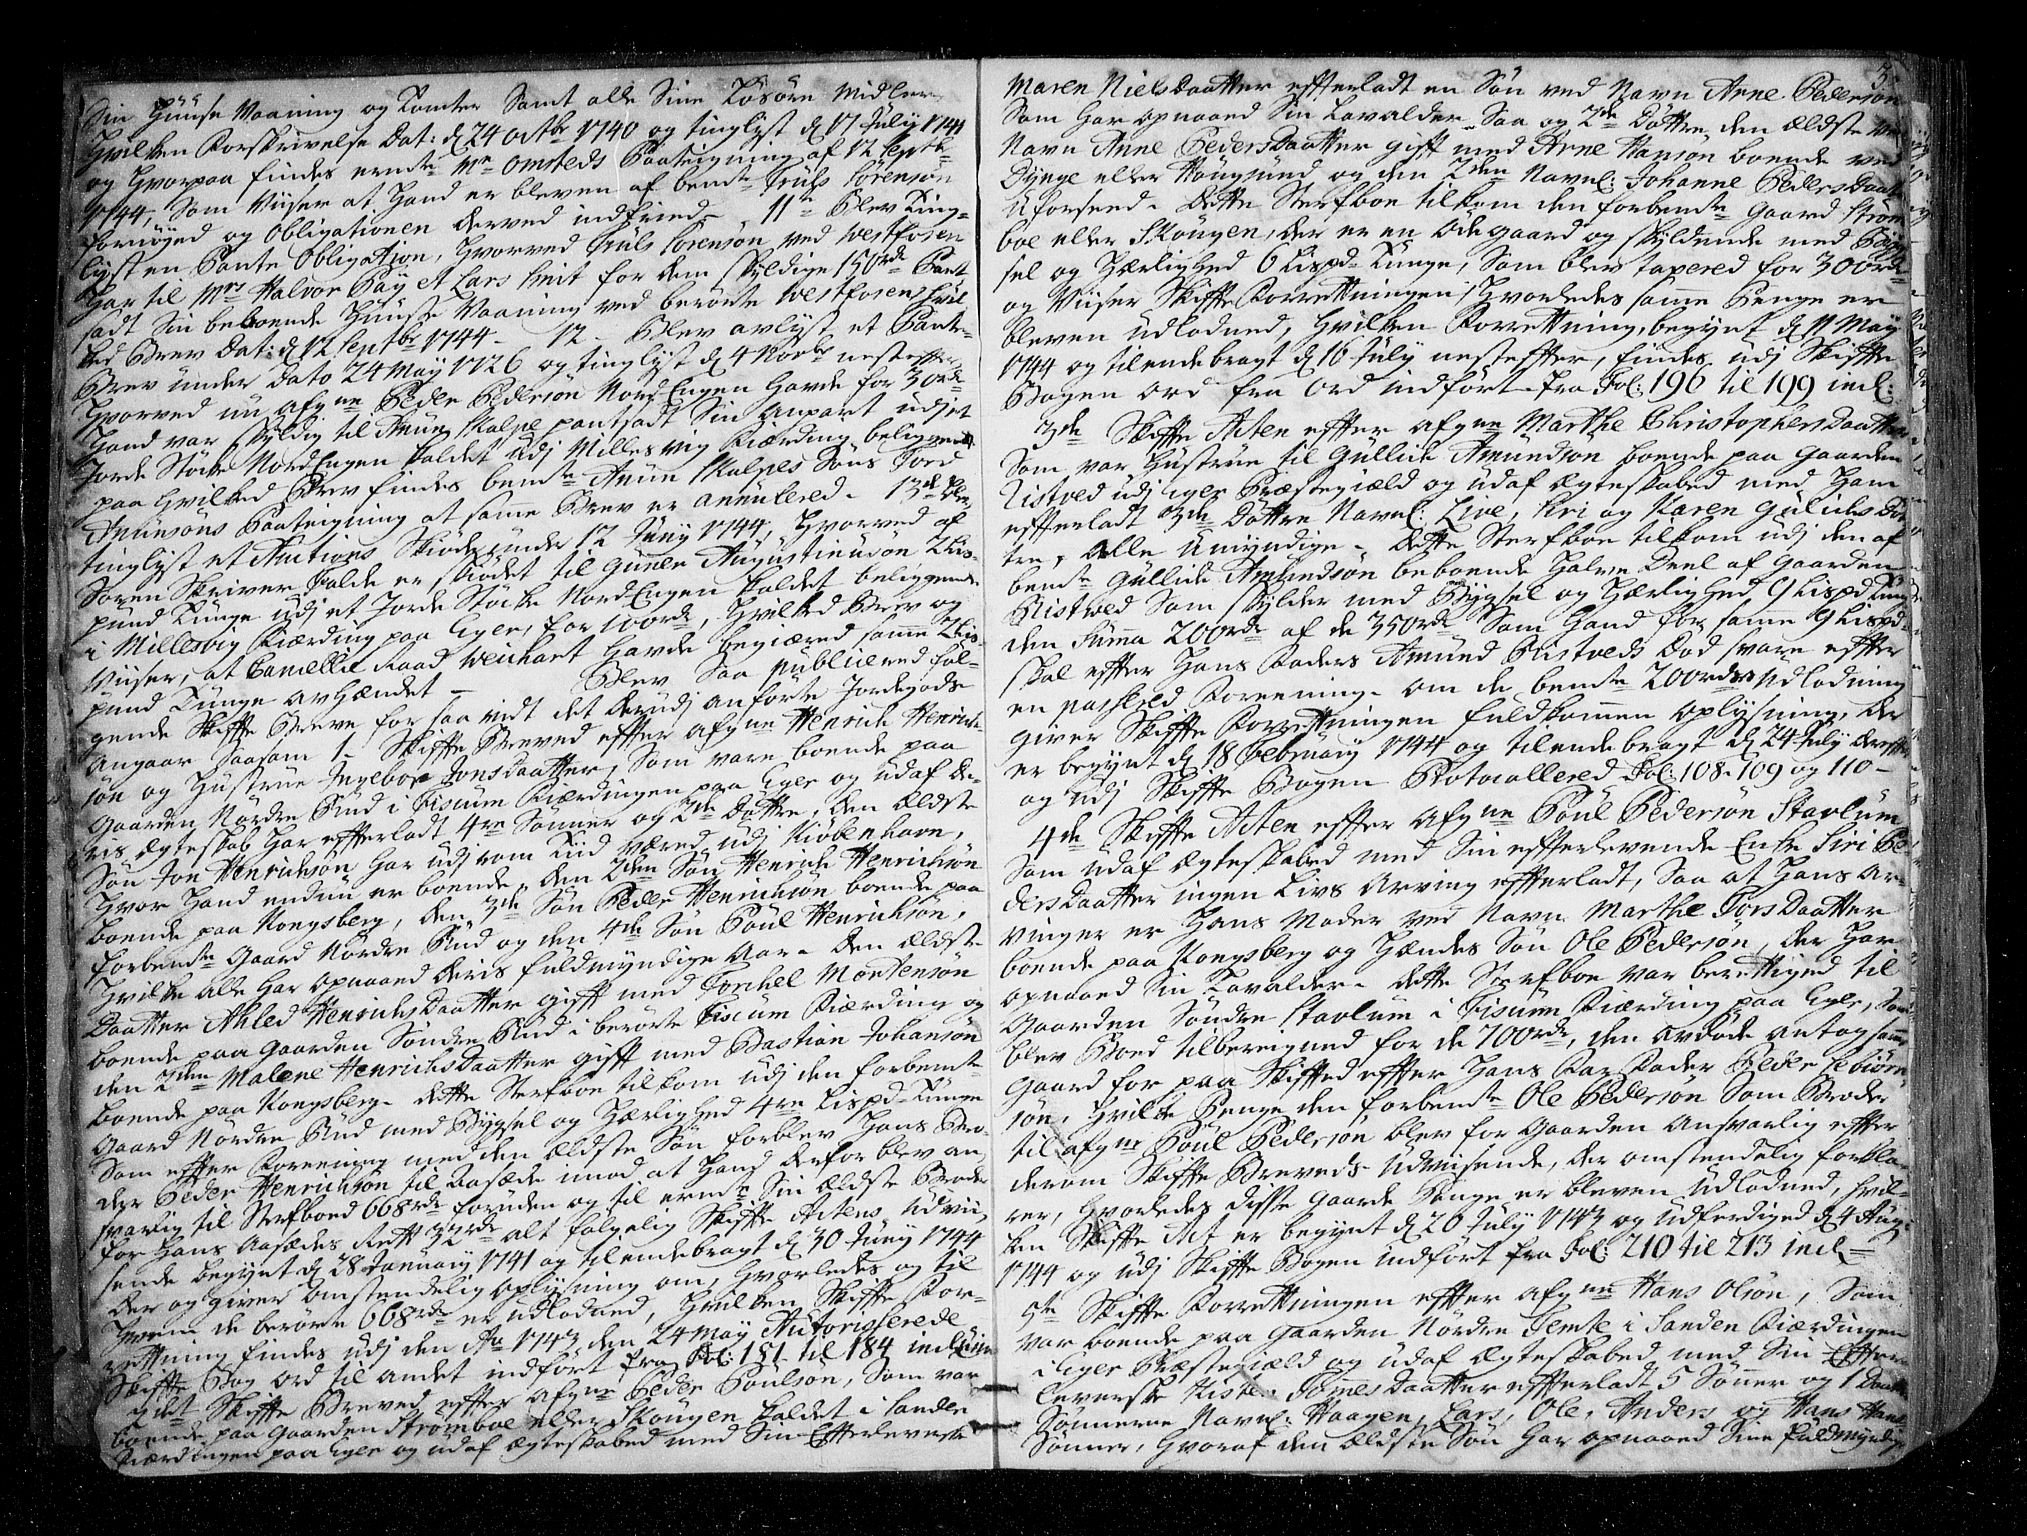 Sin Huuse Vaaning og Tomter Samt alle Sine Løsøre Midler
Hvilken Forskrivelse Dat: d 24 octbr 1740 og tinglyst d 17 July 1741
og Hvorpaa findes ermte Mr Omsteds Paateigning af 12 Septbr
1744, Som Viiser at Hand er bleven af bemte Truls Sörensön
fornöyed og Obligationen derved indfried. 11te Blev Ting-
lyst en Pante Obligation, Hvorved Truls Sörensön ved Westfosen
Har til Mrs Halvor Bay et Lars Smit for dem skyldige 150 rdr Pant
sadt Sin beboende Huuse Vaaning ved berörte Westfosen, Hvil
ked Brev Dat: d 12 Septbr 1744. 12. Blev avlyst et Pante-
Brev under Dato 24 May 1726 og tinglyst d 4 Novbr nestefter
Hvorved nu afgne Peder Pedersön NordEngen Havde for 30 rdr
Hand var skyldig til Amun Skalpe pantsadt Sin anpart udj et
Jorde Støche NordEngen kaldet udj Millesvig Fiærding beliggende
paa Hvilked Brev findes bemte Amun Skalpes Söns Tord
Amunsöns Paateigning at samme Brev er anulered. 13de Blev
tinglyst et Auctions Skiöde under 12 Juny 1744, Hvorved af
Soren Skriver Falde er skiödet til Guner Augustinusön 2 Lis-
pund Tunge udj et Jorde Støche NordEngen kaldet beliggende
i Millesvig Fiærding paa Eger, for 100 rdr, Hvilked Brev og
Viiser, at Cancellie Raad Weichart Havde begiæred samme 2 Lis-
pund Tunge avhændet. Blev Saa publicered föl-
gende Skifte Breve for saa vidt det derudj anförte Jordegods
Angaar Saasom 1. Skifte Breved effter afgne Henrich Henrich-
sön og Hustrue Ingebor JonsDaatter, Som vare boende paa
Gaarden Nördre Rud i Fiscum Fiærdingen paa Eger og udaf de-
ris Ægteskab Har efterladt 4re Sönner og 2de Döttre, den Ældste
Sön Jon Henrichsön Har udj rom Tiid været udj Kiöbenhavn,
Hvor Hand endnu er boende, den 2den Sön Henrich Henrichsön
boende paa Kongsberg, den 3de Sön Peder Henrichsön boende paa
forbemte Gaard Nördre Rud og den 4de Sön Poul Henrichsön,
Hvilke alle Har opnaaed deris fuldmyndige Aar. Den Ældste
Daatter Ahled HenrichsDaatter gift med Torchel Mortensön
boende paa Gaarden Söndre Rud i berörte Fiscum Fiærding og
den 2den Malene HenrichsDaatter gift med Bastian Johansön
boende paa Kongsberg. dette Sterfboe tilkom udj den forbemte
Gaard Nördre Rud med Bygsel og Herlighed 4re Lispd Tunge
Som effter Foreening med den Ældste Sön forblev Hans Bro-
der Peder Henrichsön til Aasæde imod at Hand derfor blev an-
svarlig til Sterfboed 668 rdr foruden og til ermte Sin Ældste Broder
for Hans Aasædes Rett 32 rdr alt folgelig Skifte Actens Udvii-
sende begynt d 28 January 1741 og til ende bragt d 30 Juny 1744
der og giver omstendelig oplysning om, Hvorledes og til
Hvem de berörte 668 rdr er udlodned, Hvilken Skifte For-
rettning findes udj den Ao 1743 den 24 May Autoriserede
Skifte Bog ord til andet indfört fra Fol: 181 til 184 inclusive
2det Skifte Breved effter afgne Peder Poulsön, Som var
boende paa Gaarden Strömboe eller Skougen kaldet i Sanden
Fiærdingen paa Eger og udaf Ægteskabed med Sin Efterleverske
Maren NielsDaatter efterladt en Sön ved Navn Arne Pedersön
Som Har opnaaed Sin Lavalder. Saa og 2de Döttre, den Ældste ved
Navn Anne PedersDaatter gift med Arne Hansön boende ved
Dynge eller Hougsund og den 2den Navnl: Johanne PedersDaat
Uforseed. Dette Sterfboe tilkom den forbemte Gaard Ström
boe eller Skougen, der er en Ödegaard og skyldende med Bÿg
sel og Herlighed 6 Lispd Tunge, Som blev taxered for 300 rdr
og Viiser Skifte Forrettningen Hvorledes samme Penge er
bleven udlodned, Hvilken Forrettning, begynt d 11 May
1744 og til ende bragt d 16 July nesteffter, findes udj Skifte
Bogen ord fra ord indfört fra Fol: 196 til 199 incl:
3de Skifte Acten effter afgne Marthe ChristophersDaatter
Som var Hustrue til Gullich Amundsön boende paa Gaarden
Ristved udj Eger Præstegiæld og udaf Ægteskabed med Ham
effterladt 3de Döttre Navnl: Live, Siri og Karen Gulichs Döt
tre, Alle Umyndige. Dette Sterfboe tilkom udj den af
bemte Gullich Amundsön beboende Halve Deel af Gaarden
Ristved Som skylder med Bygsel og Herlighed 9 Lispd Tunge
den Summa 200 rdr af de 350 rdr Som Hand for samme 9 Lispd
skal effter Hans Faders Amund Ristveds Död svare effter
en passered Foreening. om de bemte 200 rdrs Udlodning
giver Skifte Forrettningen fuldkommen Oplysning, der
er begynt d 18 February 1744 og til ende bragt d 24 July dereffter
og udj Skifte Bogen Protocollered Fol: 108. 109 og 110.
4de Skifte Acten effter afgne Poul Pedersön Stavlum
Som udaf Ægteskabed med Sin effterlevende Enke Siri Pe
dersDaatter ingen Livs Arving effterladt, Saa at Hans Ar-
vinger er Hans Moder ved Navn Marthe TorsDaatter
boende paa Kongsberg og Hendes Sön Ole Pedersön, der Har
opnaaed Sin Lavalder. dette Sterfboe var berettiged til
Gaarden Söndre Stavlum i Fiscum Fiærding paa Eger, Som
blev Boed tilbereigned for de 700 rdr, den avdöde antog samme
Gaard for paa Skifted effter Hans Far Fader Peder Sebiörn
sön, Hvilke Penge den forbemte Ole Pedersön Som Broder
til afgne Poul Pedersön blev for Gaarden Ansvarlig effter
derom Skifte Breveds Udviisende, der omstendelig forkla-
rer, Hvorledes disse Gaarde Penge er bleven Udlodned, Hvil-
ken Skifte Act er begynt d 20 July 1743 og udferdiged d 4 Aug:
1744 og udj Skifte Bogen indfört fra Fol: 210 til 213 incl
5te Skifte Forrettningen effter afgne Hans Olsön, Som
var boende paa Gaarden Nördre Temte i Sanden Fiærdingen
i Eger Præstegiæld og udaf Ægteskabed med Sin Effter
leverske Kisti TommesDaatter effterladt 5 Söner og 1 Daatter
Sönnerne Navnl: Haagen, Lars, Ole, Anders og Hans Hans
Sönner, Hvoraf den Ældste Sön Har opnaaed Sine fuldmyndige